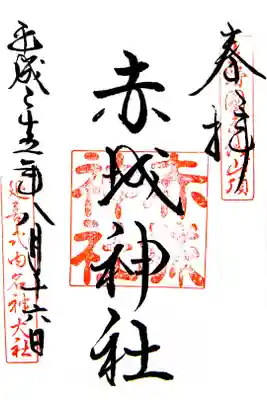 奉拝
赤城神社
赤城神社
平成二十五年八月十六日
延喜式内名神大社